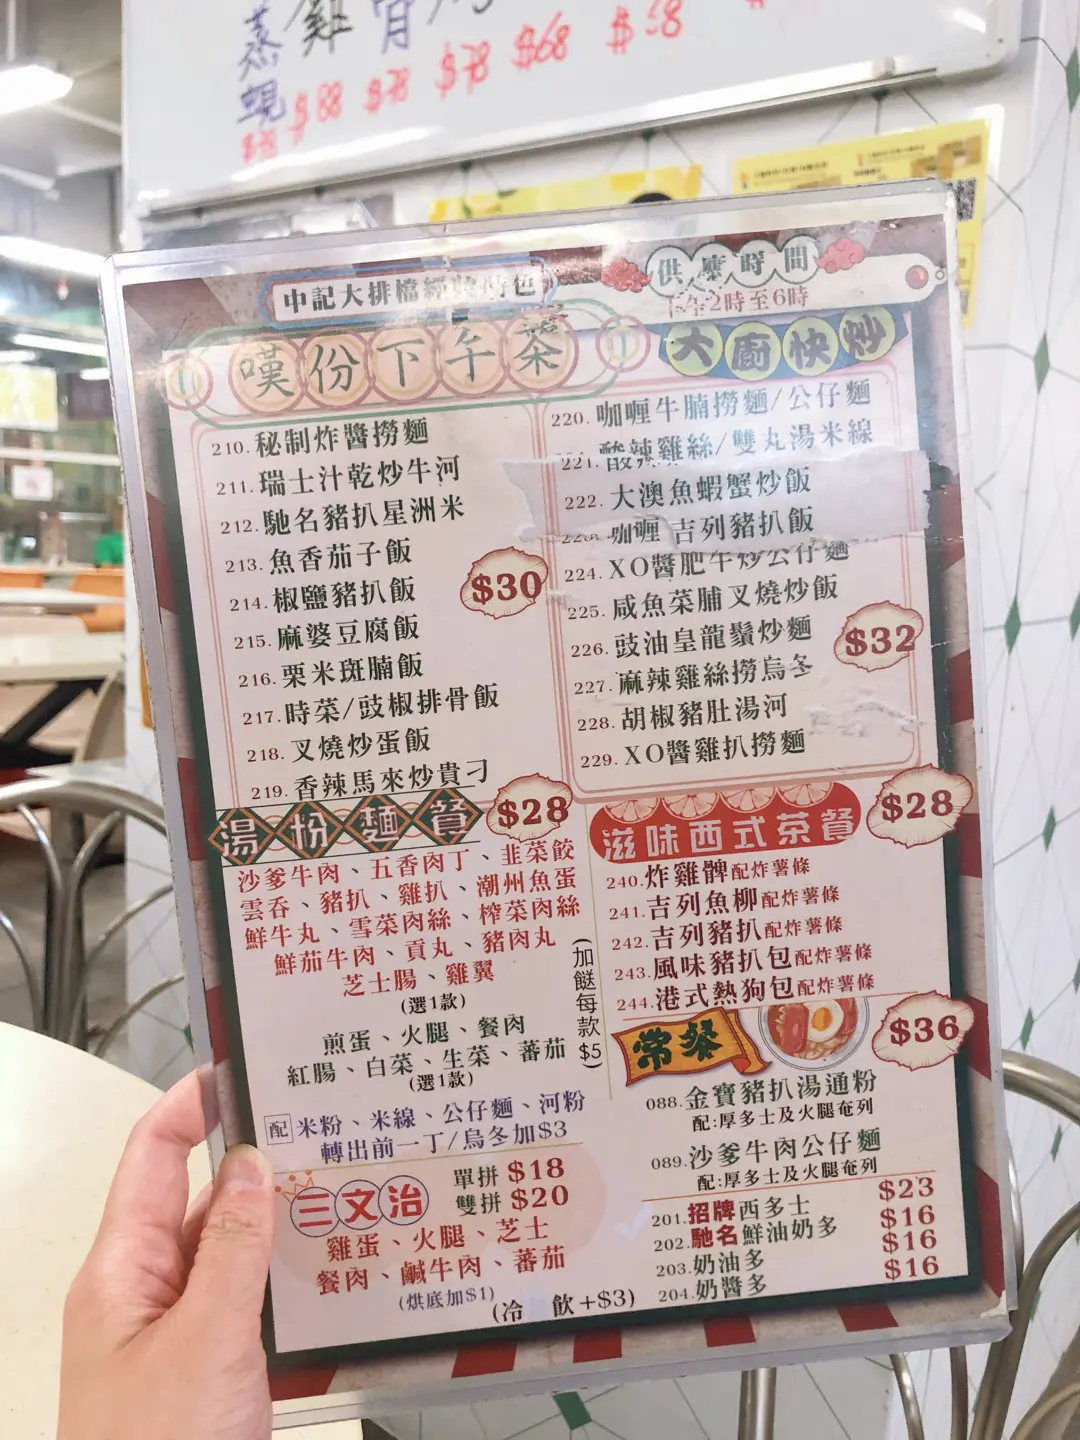 蒸 雞 骨
蜆 $88 $78 $78 $68 $58
中記大排檔經典特色
供應時間
下午2時至6時
嘆份下午茶
210.秘制炸醬撈麵
211.瑞士汁乾炒牛河
212.馳名豬扒星洲米
213.魚香茄子飯
214.椒鹽豬扒飯
215.麻婆豆腐飯
216.栗米斑腩飯
217.時菜/豉椒排骨飯
218.叉燒炒蛋飯
219.香辣馬來炒貴刁
$30
大廚快炒
220.咖喱牛腩撈麵/公仔麵
221.酸辣雞絲/雙丸湯米線
222.大澳魚蝦蟹炒飯
咖喱 吉列豬扒飯
224.XO醬肥牛炒公仔麵
225.咸魚菜脯叉燒炒飯
226.豉油皇龍鬚炒麵
227.麻辣雞絲撈烏冬
228.胡椒豬肚湯河
229.XO醬雞扒撈麵
$32
湯粉麵餐 $28
沙爹牛肉、五香肉丁、韭菜餃
雲吞、豬扒、雞扒、潮州魚蛋
鮮牛丸、雪菜肉絲、榨菜肉絲
鮮茄牛肉、貢丸、豬肉丸
芝士腸、雞翼
(選1款)
煎蛋、火腿、餐肉
紅腸、白菜、生菜、蕃茄
(選1款)
(加餸每款$5)
配 米粉、米線、公仔麵、河粉
轉出前一丁/烏冬加$3
三文治
單拼 $18
雙拼 $20
雞蛋、火腿、芝士
餐肉、鹹牛肉、蕃茄
(烘底加$1)
(冷 飲+$3)
滋味西式茶餐 $28
240.炸雞髀配炸薯條
241.吉列魚柳配炸薯條
242.吉列豬扒配炸薯條
243.風味豬扒包配炸薯條
244.港式熱狗包配炸薯條
常餐 $36
088.金寶豬扒湯通粉
配:厚多士及火腿奄列
089.沙爹牛肉公仔麵
配:厚多士及火腿奄列
201.招牌西多士 $23
202.馳名鮮油奶多 $16
203.奶油多 $16
204.奶醬多 $16